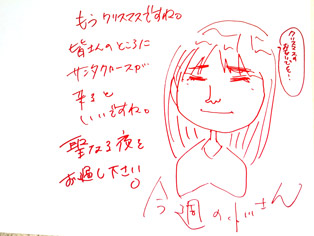 もうクリスマスですね。
皆さんのところに
サンタクロースが
来ると
いいですね。
聖なる夜を
お過し下さい。
クリスマスの
今週の小川さん